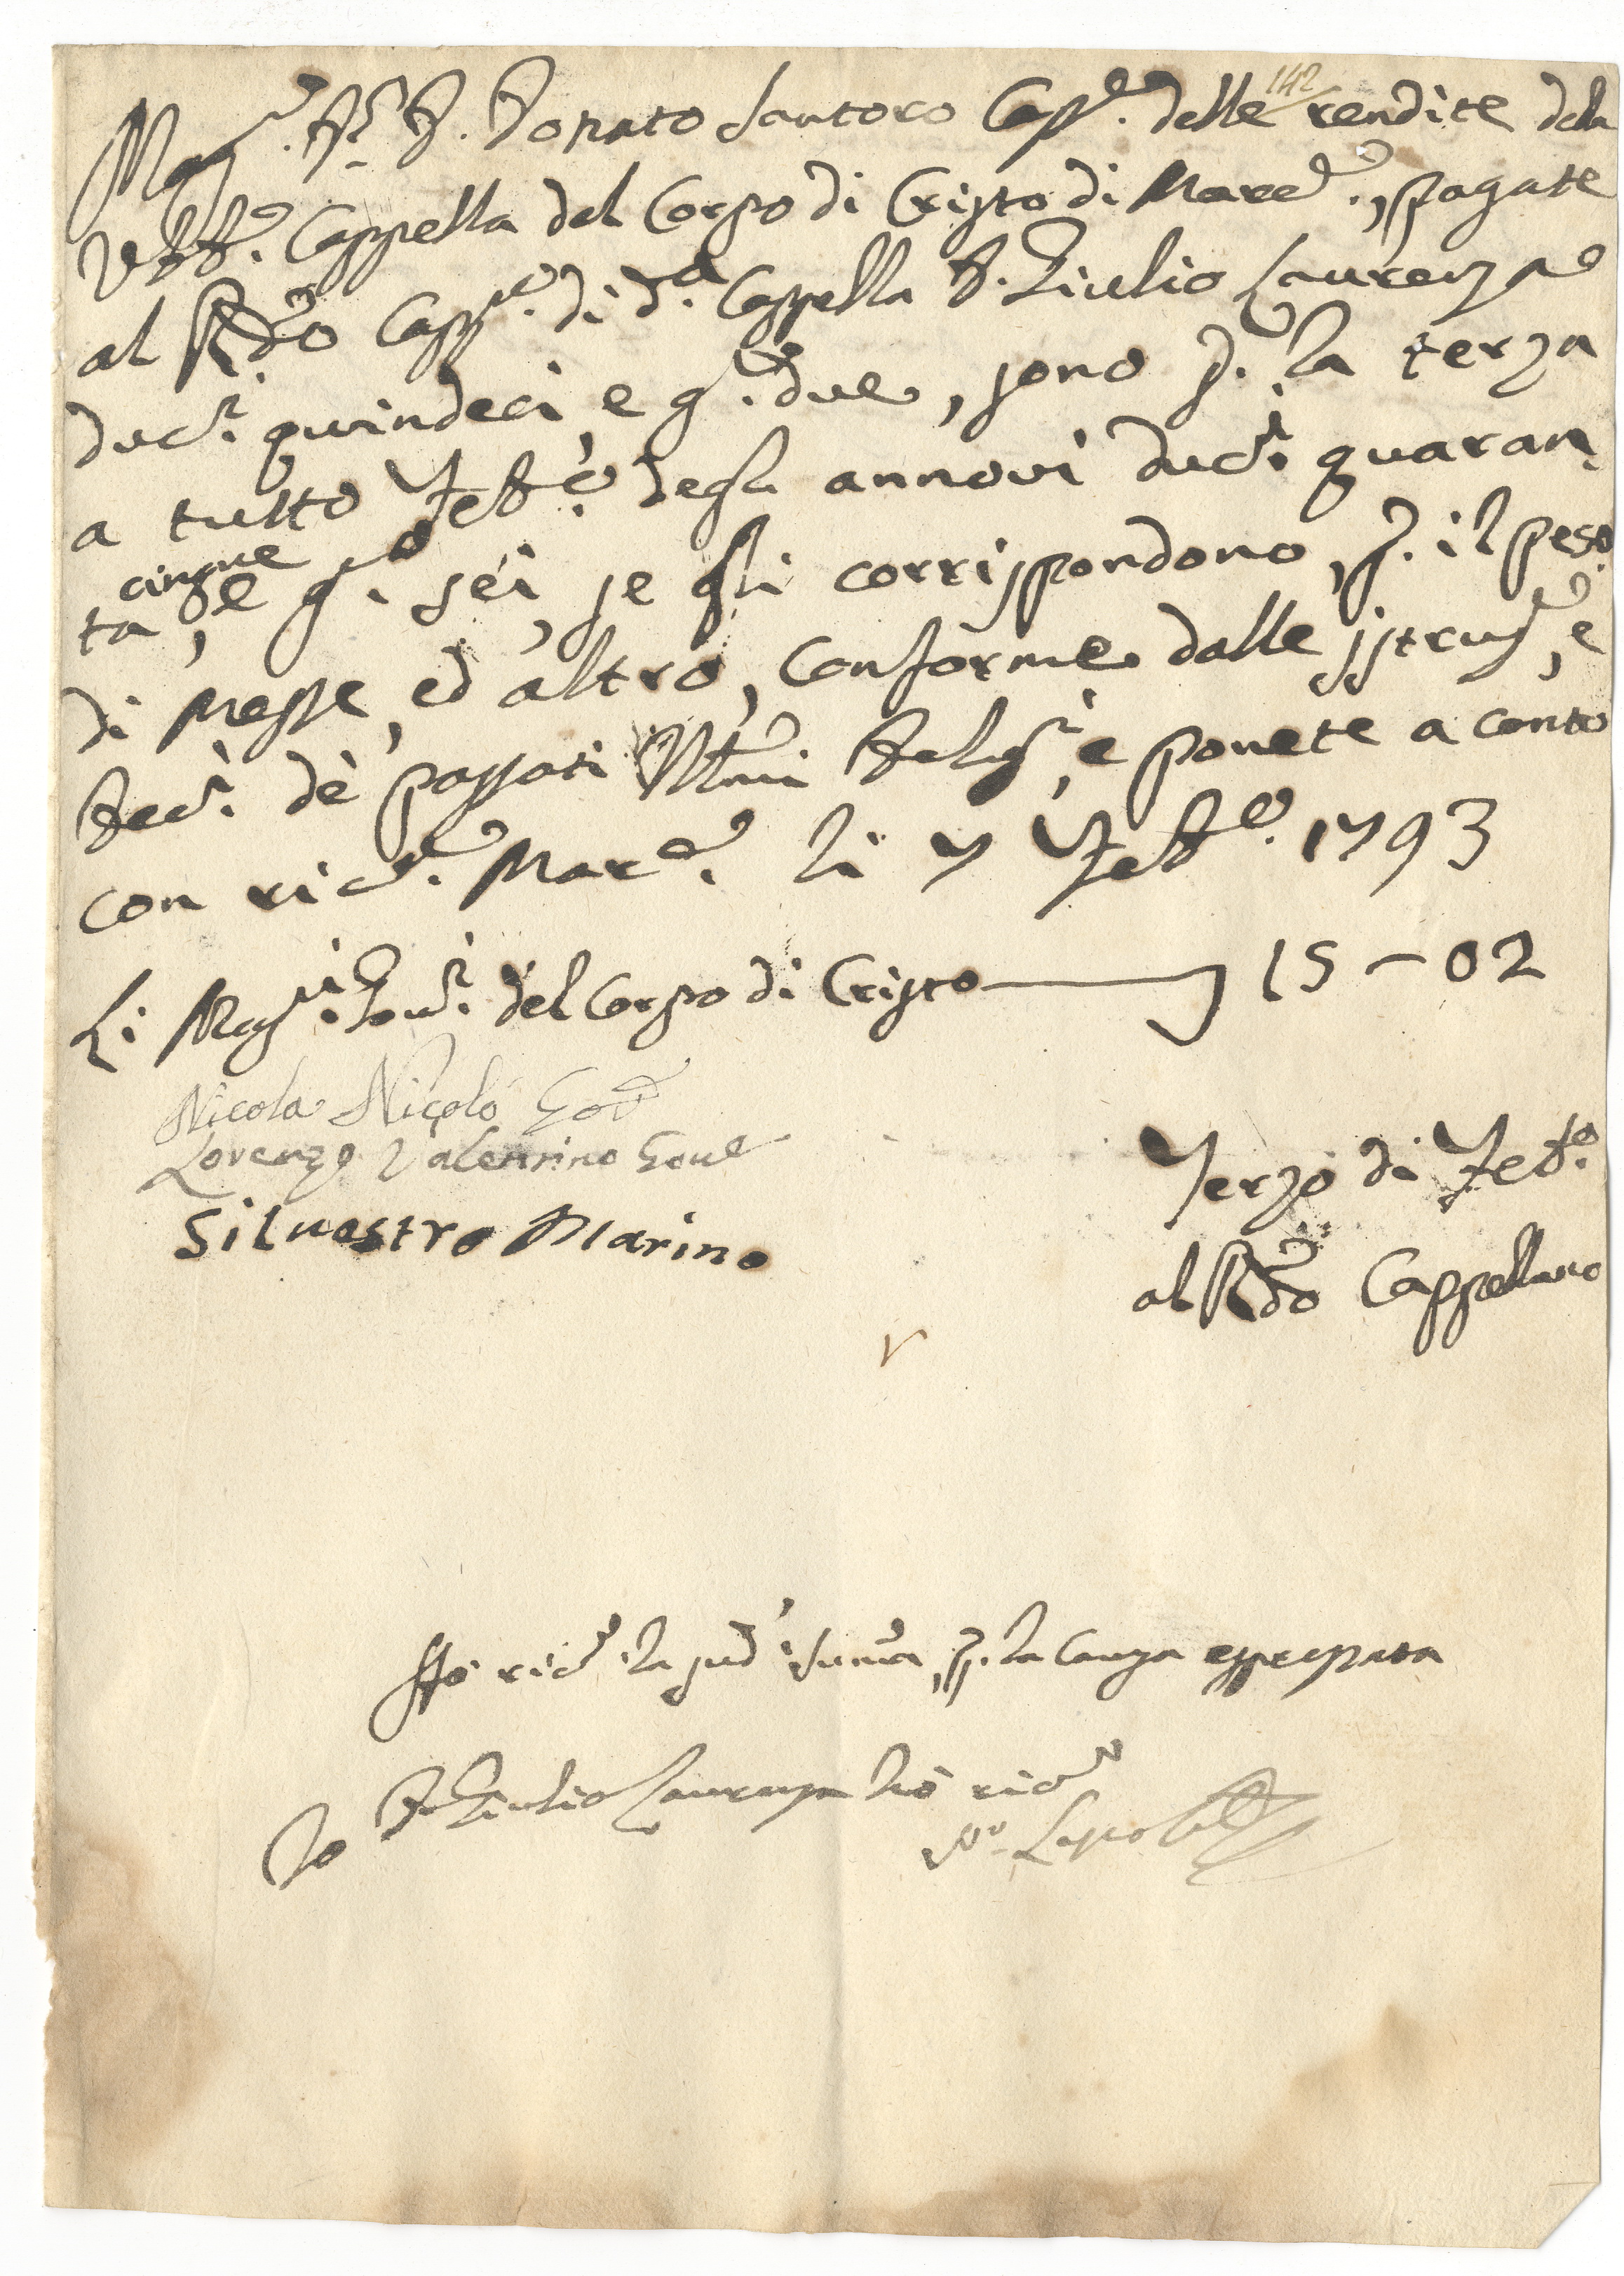 142
Mag.co Sr. D. Donato Santoro Cass.e delle rendite dela
Ven.le Cappella del Corpo di Cristo di Marc.e, pagate
al R.do Capp.no di d.a Cappella D. Giulio Laurenza
duc.ti quindeci, e g.a due, sono p. la terza
a tutto Feb.o degli annovi duc.ti quaran.
ta cinque, e g.a sei, se gli corrispondono, p. il peso
di Messe, ed altro, conforme dalle istruz.e, e
de passati e ponete a conto
con ric.a Marc.e li 7 Feb.o 1793
Li Mag.ci Gov.ri del Corpo di Cristo 15 - 02
Nicola Nicolò Gov.e
Lorenzo Valentino Gove
Silvestro Marino
Terzo di Feb.o
al R.do Cappellano
Hò ric.o la sud.a summa, p. la causa espressata
Io D. Giulio Laurenza hò ric.o